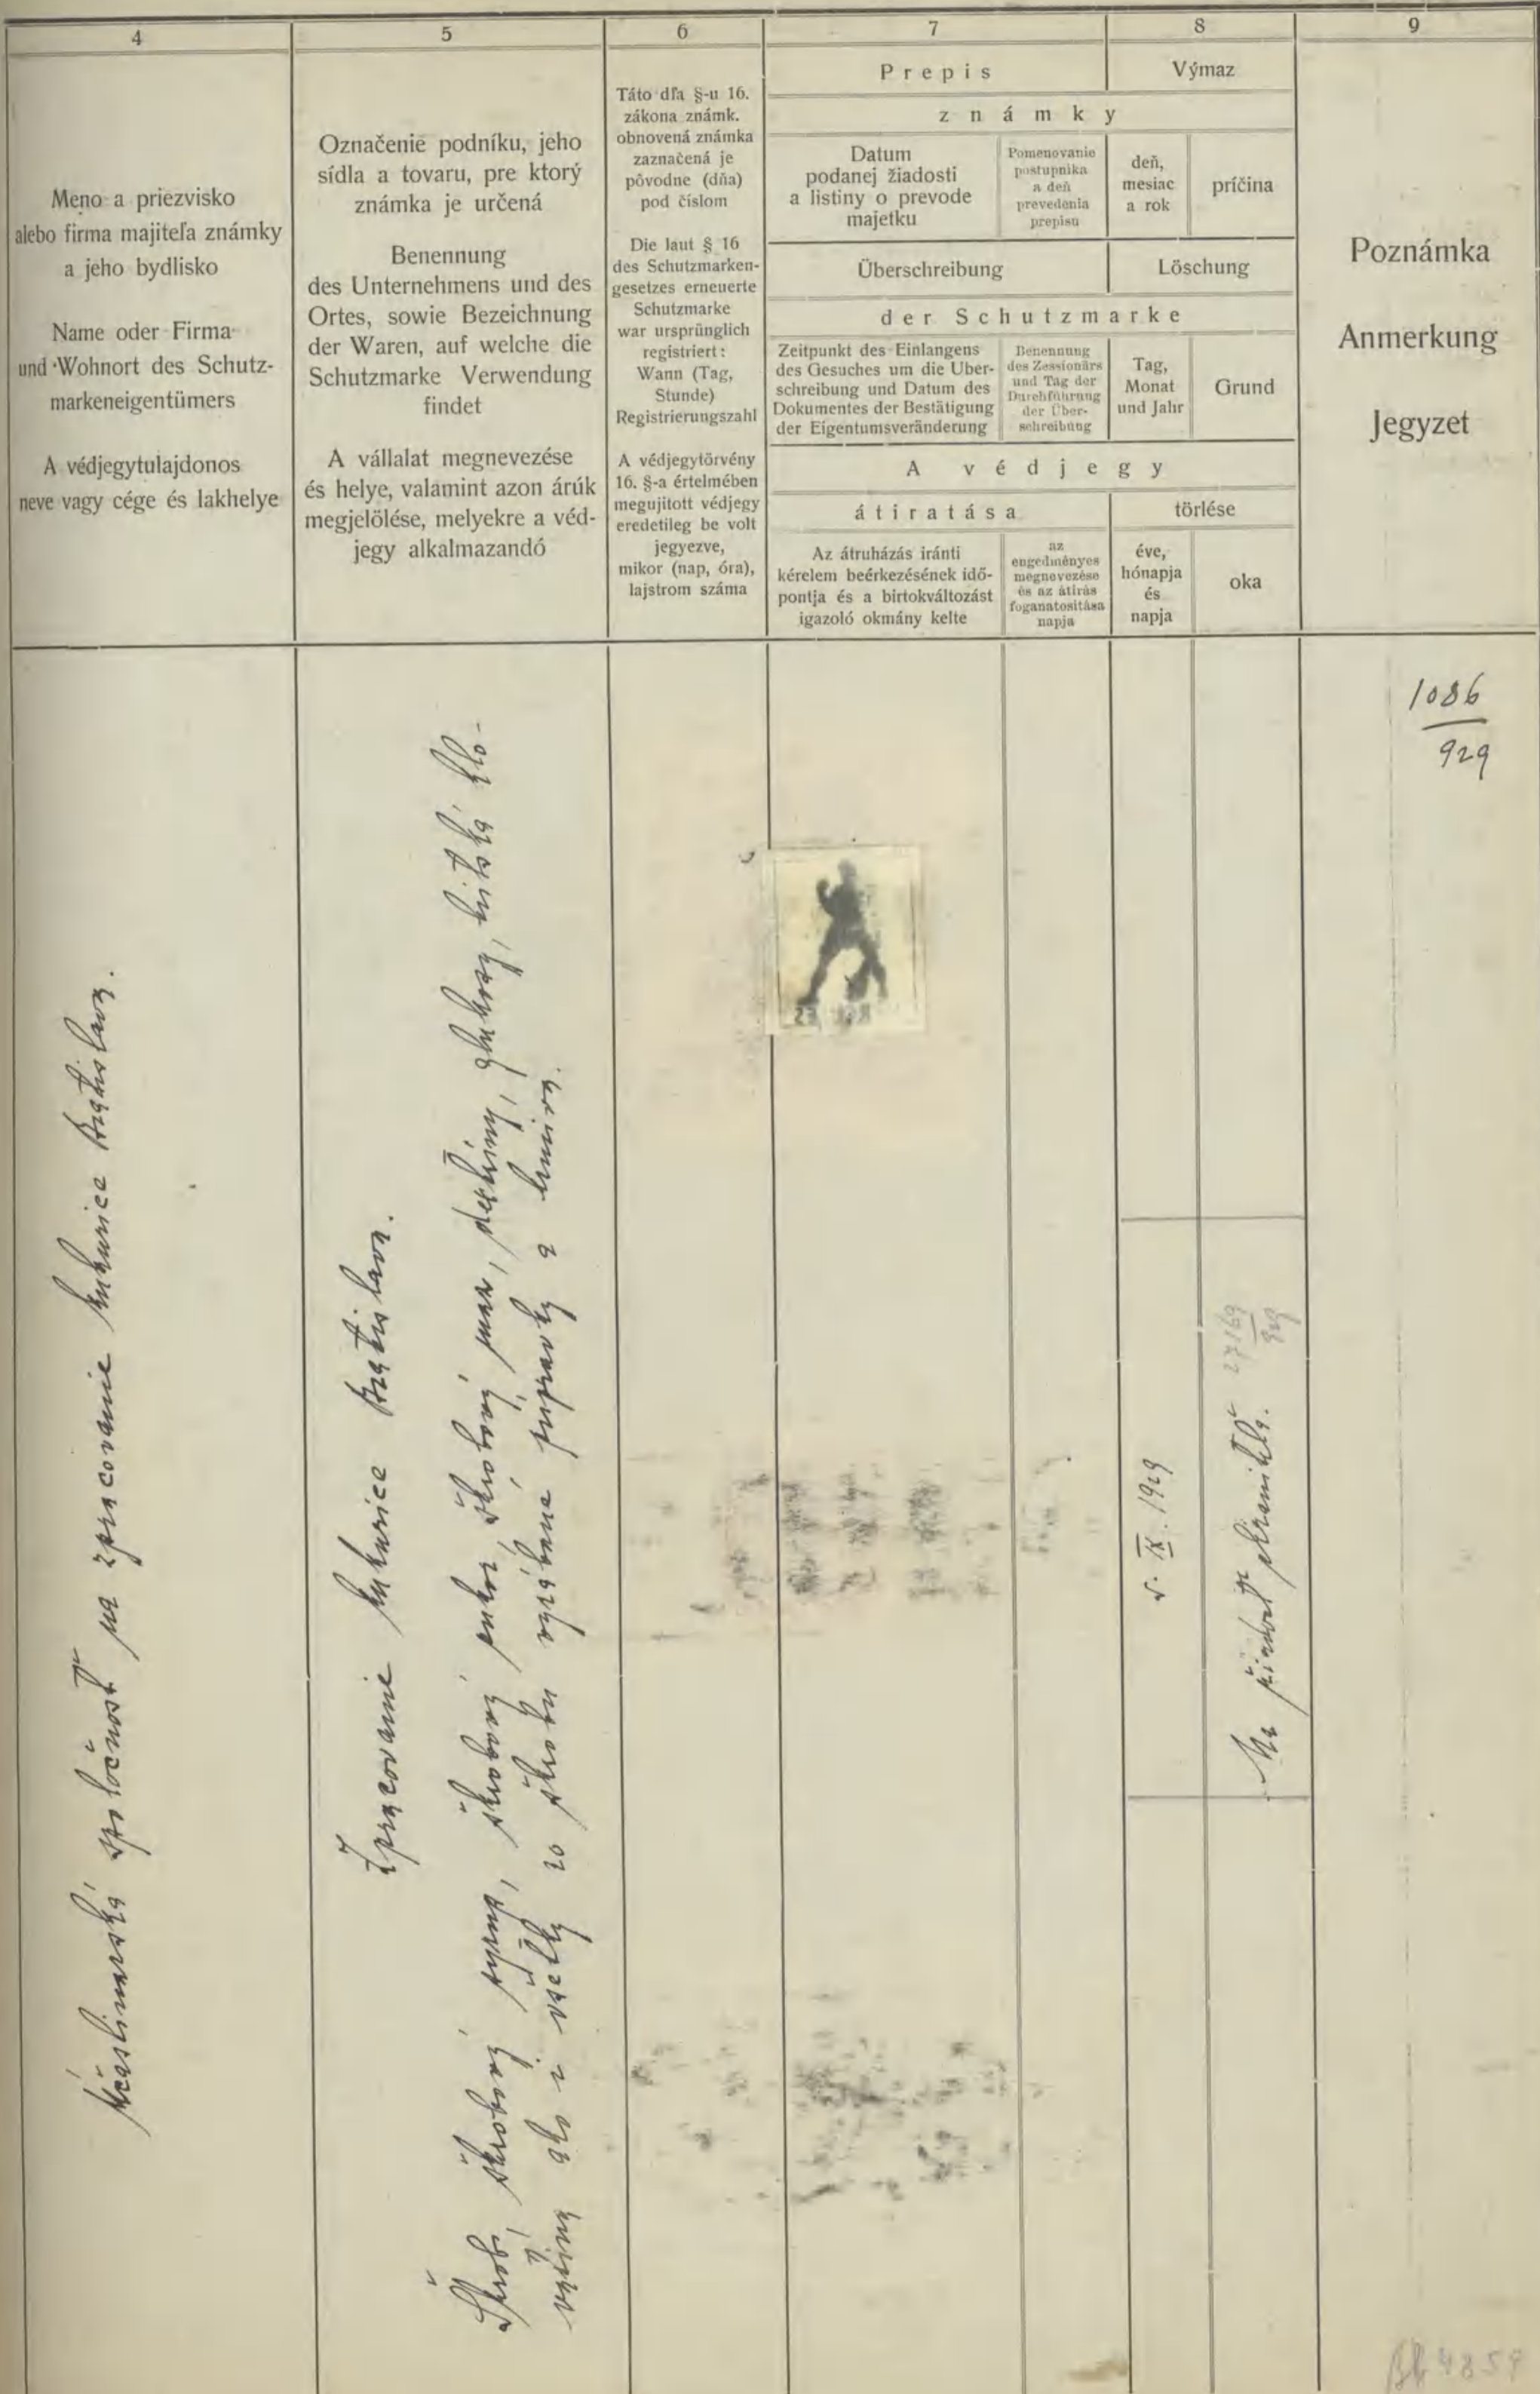 4
5
6
7
8
9
Meno a priezvisko
alebo firma majiteľa známky
a jeho bydlisko
Name oder Firma
und Wohnort des Schutz-
markeneigentümers
A védjegytulajdonos
neve vagy cége és lakhelye
Označenie podníku, jeho
sídla a tovaru, pre ktorý
známka je určená
Benennung
des Unternehmens und des
Ortes, sowie Bezeichnung
der Waren, auf welche die
Schutzmarke Verwendung
findet
A vállalat megnevezése
és helye, valamint azon árúk
megjelölése, melyekre a véd-
jegy alkalmazandó
Táto dľa §-u 16.
zákona známk.
obnovená známka
zaznačená je
pôvodne (dňa)
pod číslom
Die laut § 16
des Schutzmarken-
gesetzes erneuerte
Schutzmarke
war ursprünglich
registriert:
Wann (Tag,
Stunde)
Registrierungszahl
A védjegytörvény
16. §-a értelmében
megujitott védjegy
eredetileg be volt
jegyezve,
mikor (nap, óra),
lajstrom száma
Prepis
Výmaz
známky
Datum
podanej žiadosti
a listiny o prevode
majetku
Pomenovanie
postupnika
a deň
prevedenia
prepisu
deň,
mesiac
a rok
príčina
Überschreibung
Löschung
der Schutzmarke
Zeitpunkt des Einlangens
des Gesuches um die Über-
schreibung und Datum des
Dokumentes der Bestätigung
der Eigentumsveränderung
Benennung
des Zessionärs
und Tag der
Durchführung
der Über-
schreibung
Tag,
Monat
und Jahr
Grund
A védjegy
átiratása
törlése
Az átruházás iránti
kérelem beérkezésének idő-
pontja és a birtokváltozást
igazoló okmány kelte
az
engedményes
megnevezése
és az átirás
foganatosítása
napja
éve,
hónapja
és
napja
oka
Poznámka
Anmerkung
Jegyzet
Účastinárská spoločnosť na zpracovanie kukurice Bratislava.
Zpracovanie kukurice Bratislava.
Škrob, škrobový syrup, škrobový cukor, škrobový
dextríny, glukozy, ľudská
ako i všetky zo škrobu vyrábané prípravky a krmiva.
IX. 1929
Na žiadosť
27169
929
1086
929
4859